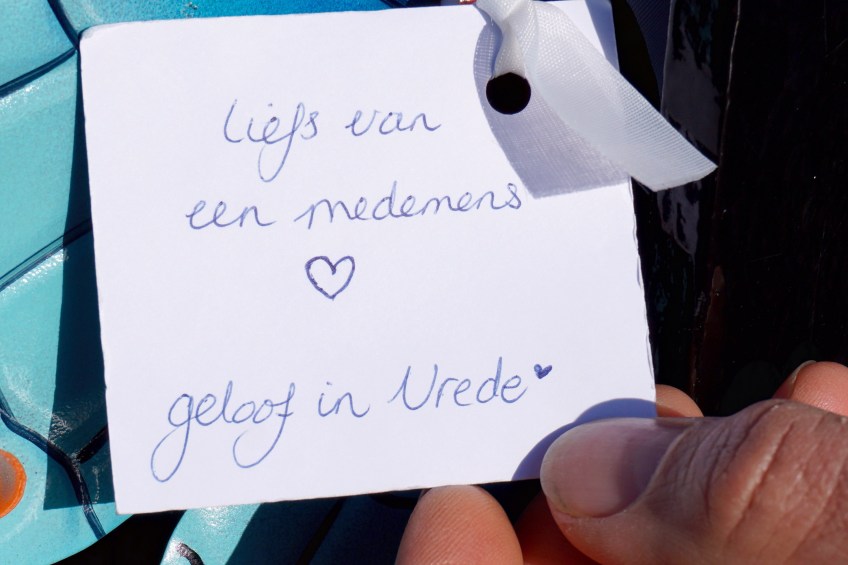 liefs van
een medemens
♡
geloof in Vrede♥